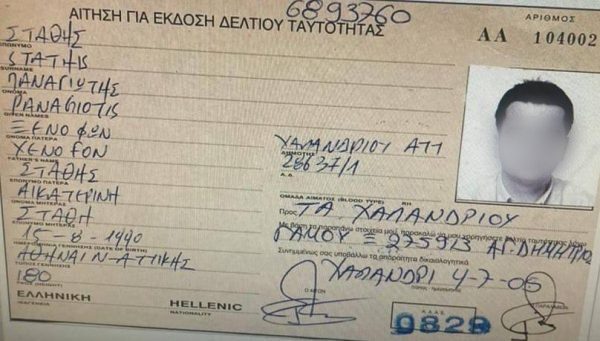 6893760
ΑΙΤΗΣΗ ΓΙΑ ΕΚΔΟΣΗ ΔΕΛΤΙΟΥ ΤΑΥΤΟΤΗΤΑΣ
ΑΡΙΘΜΟΣ
ΑΑ 104002
ΣΤΑΘΗΣ
ΕΠΩΝΥΜΟ
STATHIS
SURNAME
ΠΑΝΑΓΙΩΤΗΣ
ΟΝΟΜΑ
PANAGIOTIS
GIVEN NAMES
ΞΕΝΟΦΩΝ
ΟΝΟΜΑ ΠΑΤΕΡΑ
XENOFON
FATHER'S NAME
ΣΤΑΘΗΣ
ΕΠΩΝΥΜΟ ΠΑΤΕΡΑ
ΑΙΚΑΤΕΡΙΝΗ
ΟΝΟΜΑ ΜΗΤΕΡΑΣ
ΣΤΑΘΗ
ΕΠΩΝΥΜΟ ΜΗΤΕΡΑΣ
15-8-1990
ΗΜΕΡΟΜΗΝΙΑ ΓΕΝΝΗΣΗΣ (DATE OF BIRTH)
ΑΘΗΝΑΙ Ν-ΑΤΤΙΚΗΣ
ΤΟΠΟΣ ΓΕΝΝΗΣΗΣ
180
(HEIGHT)
ΕΛΛΗΝΙΚΗ HELLENIC
ΙΘΑΓΕΝΕΙΑ NATIONALITY
ΧΑΛΑΝΔΡΙΟΥ ΑΤΤ
ΔΗΜΟΤΗΣ
28637/1
ΟΜΑΔΑ ΑΙΜΑΤΟΣ (BLOOD TYPE) RH
Προς ΤΑ ΧΑΛΑΝΔΡΙΟΥ
Με βάση τα παραπάνω στοιχεία μου, παρακαλώ να μου χορηγήσετε δελτίο ταυτότητας
ΓΑΜΟΥ Ξ 275913
Συνημμένως σας υποβάλλω τα απαραίτητα δικαιολογητικά
ΧΑΛΑΝΔΡΙ 4-7-05
0829